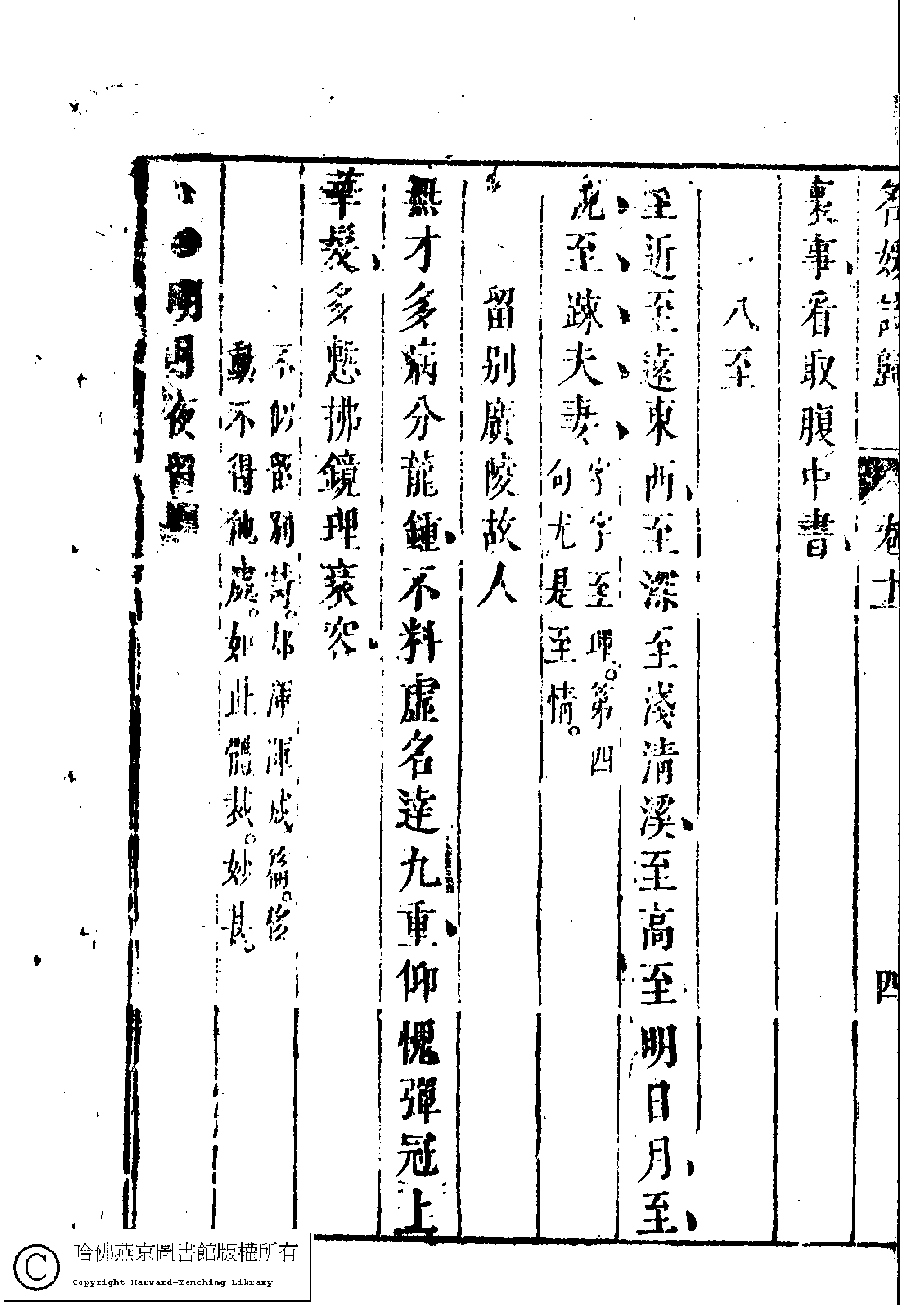 名媛詩歸 卷十一 四
裏事看取腹中書
八至
至近至遠東西至深至淺清溪至高至明日月至
親至疎夫妻字字至理。第四
句尤是至情。
留別廣陵故人
無才多病分龍鍾不料虛名達九重仰愧彈冠上
華髮多慙拂鏡理衰容
不似留別詩。却渾渾成篇。後
動不得他處。如此體裁。妙甚。
明月夜留
哈佛燕京圖書館版權所有
Copyright Harvard-Yenching Library